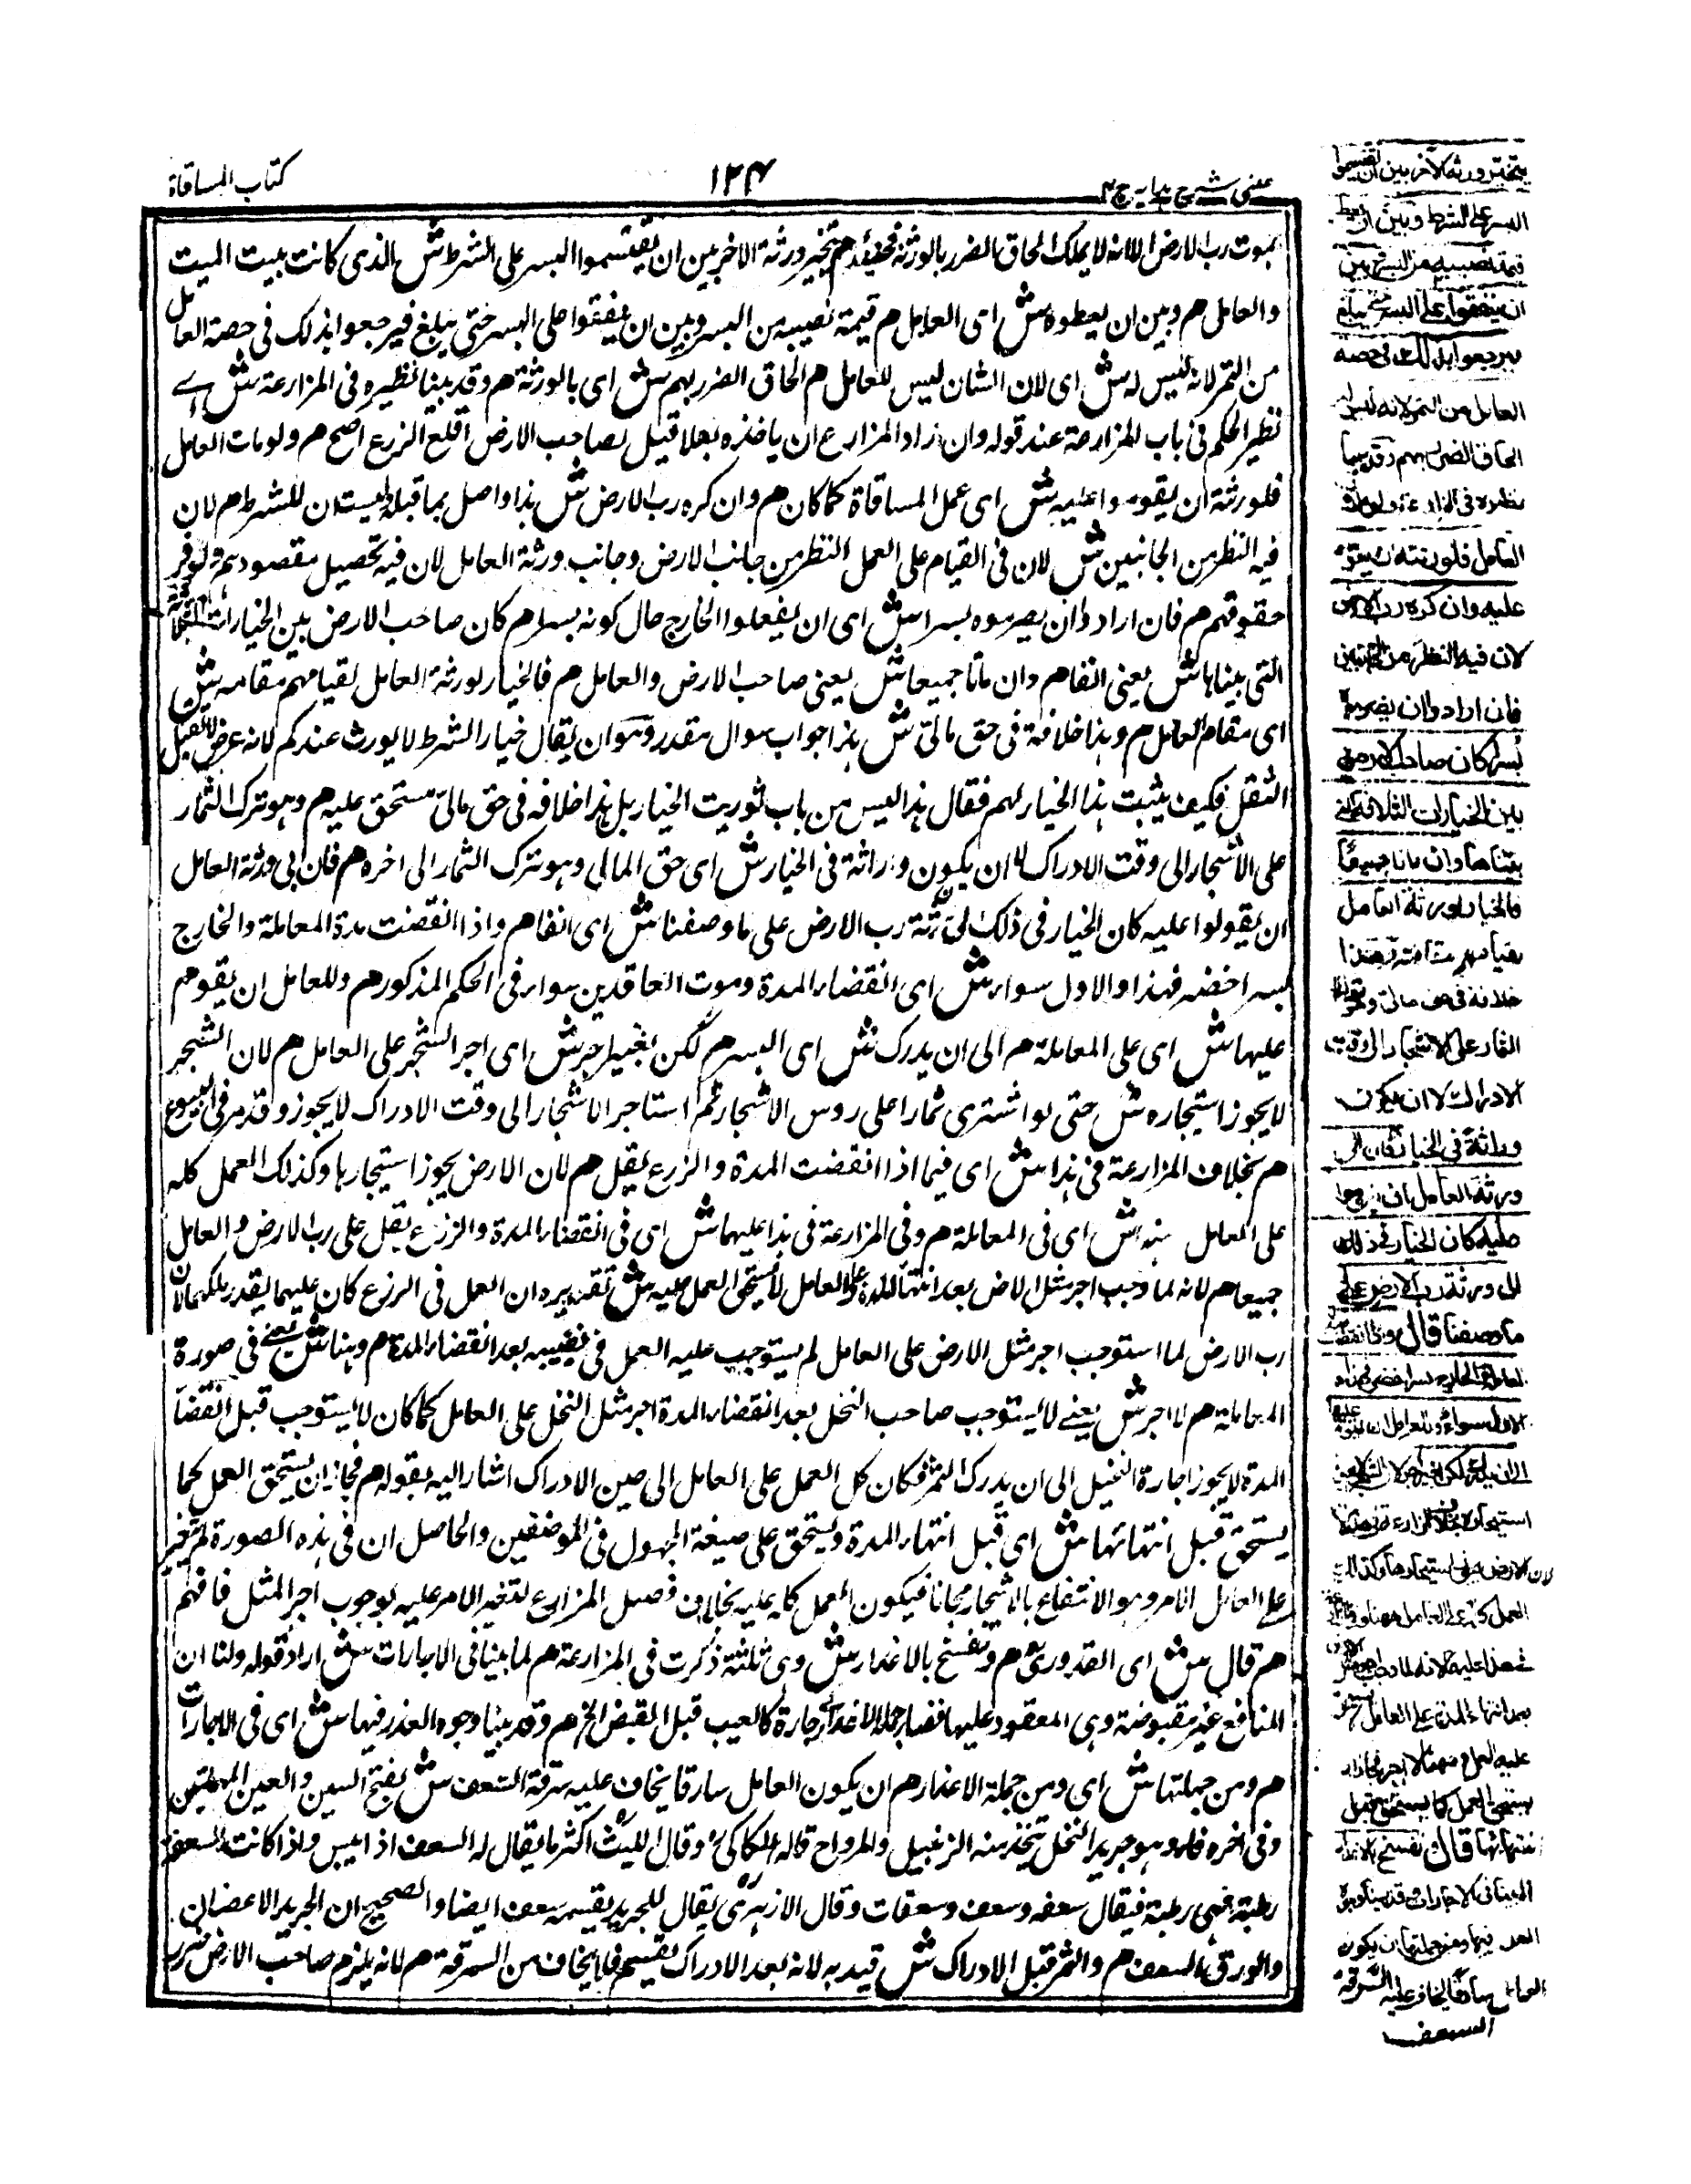 عینی شرح ہدایہ ج ۴
۱۲۴
كتاب المساقاة
بموت رب الارض الا انه لا يملك الحاق الضرر بالورثة فحينئذ هم يتخير ورثة الاخر بين ان يقتسموا البسر على الشرط ش الذى كانت بيت الميت
والعامل هم وبين ان يعطوه ش اى العامل م قيمة نصيبه من البسر وبين ان ينفقوا على البسر حتى يبلغ فيرجعوا بذلك فى حصة العامل
من الثمر لانه ليس له ش اى لان الشان ليس للعامل هم الحاق الضرر بهم ش اى بالورثة هم وقد بينا نظيره فى المزارعة ش اے
نظير الحكم فى باب المزارعة عند قوله وان اراد المزارع ان ياخذه بقلا قيل لصاحب الارض اقلع الزرع اصح هم ولو مات العامل
فلورثته ان يقوموا عليه ش اى عمل المساقاة كما كان هم وان كره رب الارض ش هذا واصل بما قبله وليست ان للشرط هم لان
فيه النظر من الجانبين ش لان فى القيام على العمل النظر من جانب الارض وجانب ورثة العامل لان فيه تحصيل مقصودهم وتوفر
حقوقهم هم فان ارادوا ان يصرموه بسرا ش اى ان يفعلوا الخارج حال كونه بسرا هم كان صاحب الارض بين الخيارات الثلاثة
التى بيناها ش يعنى انفا هم وان ماتا جميعا ش يعنى صاحب الارض والعامل هم فالخيار لورثة العامل لقيامهم مقامه ش
اى مقام العامل هم وهذا خلافة فى حق مالى ش هذا جواب سوال مقدر وهو ان يقال خيار الشرط لا يورث عندكم لانه عرض لا يقبل
النقل فكيف يثبت هذا الخيار لهم فقال هذا ليس من باب توريث الخيار بل هذا خلافه فى حق مالى مستحق عليه هم وهو ترك الثمار
على الاشجار الى وقت الادراك لا ان يكون وراثة فى الخيار ش اى حق المالى وهو ترك الثمار الى اخره هم فان ابى ورثة العامل
ان يقوموا عليه كان الخيار فى ذلك لورثة رب الارض على ما وصفنا ش اى انفا هم واذا انقضت مدة المعاملة والخارج
بسر اخضر فهذا والاول سواء ش اى انقضاء المدة وموت العاقدين سواء فى الحكم المذكور هم وللعامل ان يقوم
عليها ش اى على المعاملة هم الى ان يدرك ش اى البسر هم لكن بغير اجر ش اى اجر الشجر على العامل هم لان الشجر
لا يجوز استيجاره ش حتى لو اشترى ثمارا على روس الاشجار ثم استاجر الاشجار الى وقت الادراك لا يجوز وقد مر فى البيوع
هم بخلاف المزارعة فى هذا ش اى فيما اذا انقضت المدة والزرع بقل هم لان الارض يجوز استيجارها وكذلك العمل كله
على العامل هنه ش اى فى المعاملة هم وفى المزارعة فى هذا عليهما ش اى فى انقضاء المدة والزرع بقل على رب الارض والعامل
جميعا هم لانه لما وجب اجر مثل الارض بعد انتهاء المدة على العامل لا يستحق العمل عليه ش تقديره ان العمل فى الزرع كان عليهما بقدر ملكهما لان
رب الارض لما استوجب اجر مثل الارض على العامل لم يستوجب عليه العمل فى نصيبه بعد انقضاء المدة هم وهنا ش يعنى فى صورة
المعاملة هم لا اجر ش يعنے لا يستوجب صاحب النخل بعد انقضاء المدة اجر مثل النخل على العامل كما كان لا يستوجب قبل انقضاء
المدة لا يجوز اجارة النخيل الى ان يدرك الثمر فكان كل العمل على العامل الى حين الادراك اشار اليه بقوله هم فجاز ان يستحق العمل كما
يستحق قبل انتهائها ش اى قبل انتهاء المدة ويستحق على صيغة المجهول فى الموضعين والحاصل ان فى هذه الصورة لم يتغير
على العامل الامر وهو الانتفاع بالاشجار مجانا فيكون العمل كله عليه بخلاف فصل المزارع لتغير الامر عليه بوجوب اجر المثل فافهم
هم قال ش اى القدورى هم وتفسخ بالاعذار ش وهى ثلثة ذكرت فى المزارعة هم لما بينا فى الاجارات ش اراد قوله ولنا ان
المنافع غير مقبوضة وهى المعقود عليها فصار العذر فى الاجارة كالعيب قبل القبض الخ هم وقد بينا وجوه العذر فيها ش اى فى الاجارات
هم ومن جملتها ش اى ومن جملة الاعذار هم ان يكون العامل سارقا يخاف عليه سرقة السعف ش بفتح السين والعين المهملتين
وفى اخره فاء وهو جريد النخل يتخذ منه الزنبيل والمراوح قاله الكاكى وقال الليث اكثر ما يقال له السعف اذا يبس واذا كانت السعفة
رطبة فهى رطبة فيقال سعفه وسعف وسعفات وقال الازهرى يقال للجريد بقسيمه سعف ايضا والصحيح ان الجريد الاغصان
والورق السعف هم والثمر قبل الادراك ش قيد به لانه بعد الادراك يقسم فلا يخاف من السرقة هم لانه يلزم صاحب الارض ضرر
يتخير ورثة الاخر بين ان يقتسموا
البسر على الشرط وبين ان يعطوه
قيمة نصيبه من البسر وبين
ان ينفقوا على البسر حتى يبلغ
فيرجعوا بذلك فى حصة
العامل من الثمر لانه ليس له
الحاق الضرر بهم وقد بينا
نظيره فى المزارعة ولو مات
العامل فلورثته ان يقوموا
عليه وان كره رب الارض
لان فيه النظر من الجانبين
فان ارادوا ان يصرموه
بسرا كان صاحب الارض
بين الخيارات الثلاثة التى
بيناها وان ماتا جميعا
فالخيار لورثة العامل
لقيامهم مقامه وهذا
خلافة فى حق مالى وهو ترك
الثمار على الاشجار الى وقت
الادراك لا ان يكون
وراثة فى الخيار فان ابى
ورثة العامل ان يقوموا
عليه كان الخيار فى ذلك
الى ورثة رب الارض على
ما وصفنا قال واذا انقضت
المعاملة والخارج بسر اخضر فهذا و
الاول سواء وللعامل ان يقوم عليها
الى ان يدرك لكن بغير اجر لان الشجر لا يجوز
استيجاره بخلاف المزارعة فى هذا
لان الارض يجوز استيجارها وكذلك
العمل كله على العامل ههنا وفى المزارعة
فى هذا عليهما لانه لما وجب اجر مثل الارض
بعد انتهاء المدة على العامل لا يستحق
عليه العمل وههنا لا اجر فجاز ان
يستحق العمل كما يستحق قبل
انتهائها قال وتفسخ بالاعذار
لما بينا فى الاجارات وقد بينا وجوه
العذر فيها ومن جملتها ان يكون
العامل سارقا يخاف عليه سرقة
السعف